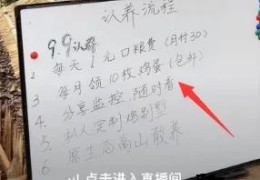 认养流程
1. 9.9认养
2. 每天1元口粮费(月付30)
3. 每月领10枚鸡蛋(包邮)
4. 分享监控,随时看
5. 私人定制鸡别墅
6. 原生态高山散养
点击进入直播间